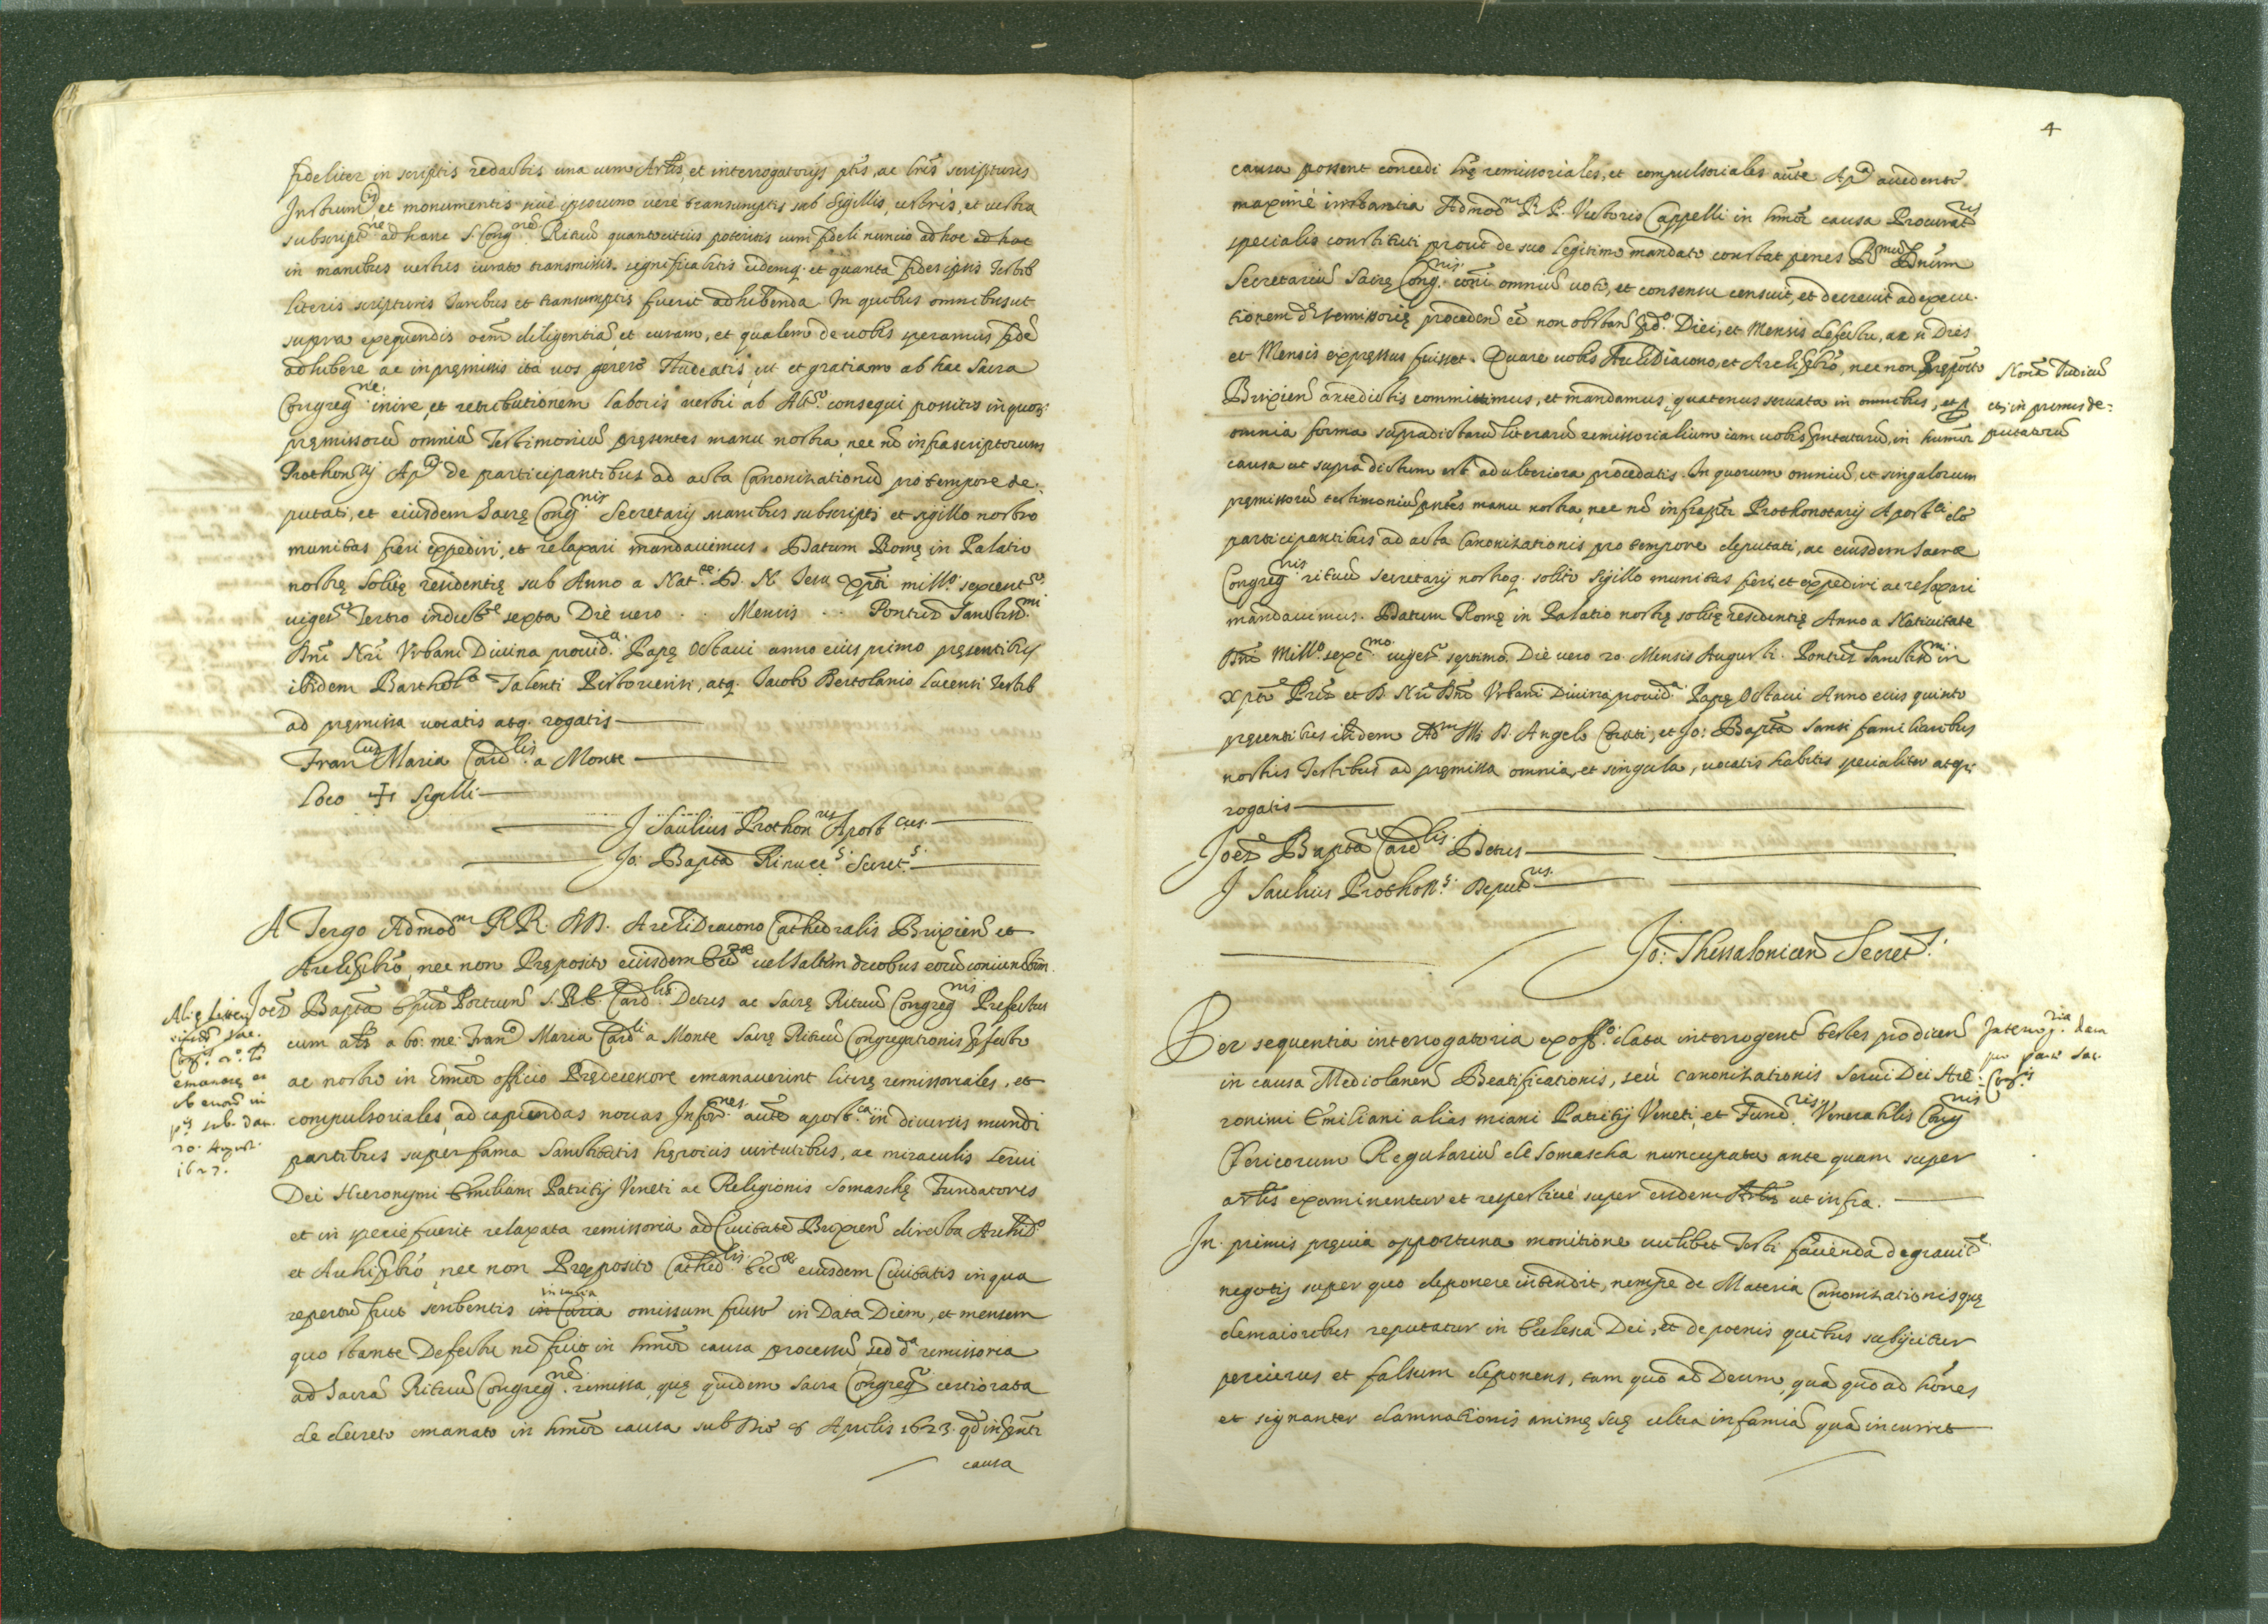 fideliter in scriptis redactis una cum Artlis, et interrogatorijs ptis, ac lris scripturis
Instrumtis, et monumentis siue ipsorum uere transumptis sub Sigillis uestris, et uestra
subscriptne ad hanc S. Congnem Rituu quantocitius poteritis cum fideli nuncio ad hoc ad hoc
in manibus uestris iurato transmittis. significabitis eidemq. et quanta fides ipsis Testib
literis scripturis Iuribus et transumptis fuerit adhibenda. In quibus omnibus ut
supra exequendis oem diligentia et curam, et qualem de uobis speramus fide
adhibere ac in pręmissis ita uos gerere studeatis, ut et gratiam ab hac Sacra
Congregne. inire, et retributionem laboris uestri ab Altmo. consequi possitis in quor:
pręmissoru omniu Testimoniu pręsentes manu nostra, nec no infrascriptorum
Prothonrij Apci de participantibus ad acta Canonizationu pro tempore de:
putati, et eiusdem Sacrę Congnis Secretarij manibus subscripti et sigillo nostro
munitas fieri expediri, et relaxari mandauimus. Datum Romę in Palatio
nostrę solitę residentię sub Anno a Natte. D. N. Iesu Xpti millo. sexcentmo
uigesо Tertio indictne sexta Die uero . . Mensis . . Pontus Sanctissmi
Dni Nri Vrbani Diuina prouida. Papę Octaui anno eius primo pręsentibus
ibidem Bartholo Talenti Pistoriensi, atq. Iacobo Bertolanio Lucensi Testib
ad pręmissa uocatis atq. rogatis
Francus Maria Cardlis a Monte
Loco + Sigilli
J Saulius Prothonrus Apostcus.
Jo: Bapta Rinucc.s Secret.s
A Tergo Admodm RR. DD. ArchiDiacono Cathedralis Brixien et
Archipbro, nec non Pręposito eiusdem Eccae uel saltem duobus eoru coniunctim.
Joes Bapta Epus Portuen S.R.E. Cardlis Detus ac Sacrę Rituu Congregnis Prefectus
cum als a bo: me: Franco Maria Cardli a Monte Sacrę Rituu Congregationis pfecto
ac nostro in hmoi officio Prędecessore emanauerint literę remissoriales, et
compulsoriales, ad capiendas nouas Infornes. aucte apostca in diuersis mundi
partibus super fama Sanctitatis heroicis uirtutibus, ac miraculis Serui
Dei Hieronymi Emiliani Patritij Veneti ac Religionis Somaschę Fundatoris
et in specie fuerit relaxata remissoria ad Ciuitate Brixien directa Archido
et Archipbro, nec non Pręposito Cathedlis. Eccae eiusdem Ciuitatis in qua
in curia
repertu fuit scribentis in Curia omissum fuisse in Data Diem, et mensem
quo stante Defectu no fuit in hmoi causa processu, sed da remissoria
ad Sacra Rituu Congregne. remissa, quę quidem Sacra Congreg certiorata
de decreto emanato in hmoi causa sub Die 8 Aprilis 1623. qd in pnti
causa
Alię literę
emanatę
ob errore in
sub. dat.
20. August.
1627.
4
causa possent concedi lrę remissoriales, et compulsoriales aucte Apca accedente.
maxime instantia Admodm R. P. Victoris Cappelli in hmoi causa Procuratris
specialis constituti prout de suo legitimo mandato constat penes Rmum Dnum
Secretariu Sacrę Congnis. coni omniu uoto, et consensu censuit, et decreuit ad execu.
tionem de remissorię proceden ee non obstan pdo. Diei, et Mensis defectu, ac si Dies
et Mensis expressus fuisset. Quare uobis ArchiDiacono, et Archipbro, nec non Pręposito
Brixien antedictis committimus, et mandamus quatenus seruata in omnibus, et p
omnia forma supradictaru literaru remissorialium iam uobis pntataru, in humoi
causa ut supra dictum est ad ulteriora procedatis. In quorum omniu, et singulorum
pręmissoru testimoniu pntes manu nostra, nec no infrapti Prothonotarij Apostci de
participantibus ad acta Canonizationis pro tempore deputati, ac eiusdem Sacrae
Congregnis rituu secretarij nostroq. solito sigillo munitas fieri et expediri ac relaxari
mandauimus. Datum Romę in Palatio nostrę solitę residentię Anno a Natiuitate
Dni Millo. sexcmo uiges.o septimo. Die uero 20. Mensis Augusti. Pontus Sanctissmi in
Xpto Pris et D. Nri Dni Vrbani Diuina prouida Papę Octaui Anno eius quinto
pręsentibus ibidem Adm Illi D. Angelo Corati, et Jo: Bapta Sansi familiaribus
nostris Testibus ad pręmissa omnia, et singula, uocatis habitis specialiter atq;
rogatis
Joes Bapta Cardlis. Detus
J Saulius Prothon.s Deputrus.
Jo: Thessalonicen Secret.s
Per sequentia interrogatoria ex offo. data interrogent testes producen
in causa Mediolanen Beatificationis, seu canonizationis Serui Dei Hie:
ronimi Emiliani alias miani Patritij Veneti, et Fundris Venerabilis Congnis
Clericorum Regulariu de Somascha nuncupata ante quam super
artlis examinentur et respectiue super eisdem Artlis ut infra.
In primis pręuia opportuna monitione cuilibet Testi facienda de grauite
negotij super quo deponere intendit, nempe de Materia Canonizationis quę
de maioribus reputatur in Ecclesia Dei, et de poenis quibus subijcitur
periurus et falsum deponens, tam quo ad Deum, qua quo ad hoies
et signanter damnationis animę suę ultra infamia qua incurrit
Noua Iudicu
etc in primis de:
putatoru
Interrogria. data
pro parte Sac.
Congnis